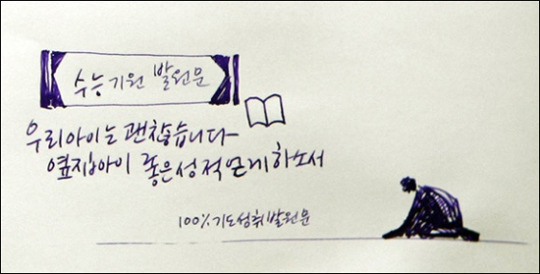 수능기원 발원문
우리아이는 괜찮습니다
옆집아이 좋은성적얻게하소서
100% 기도성취발원문